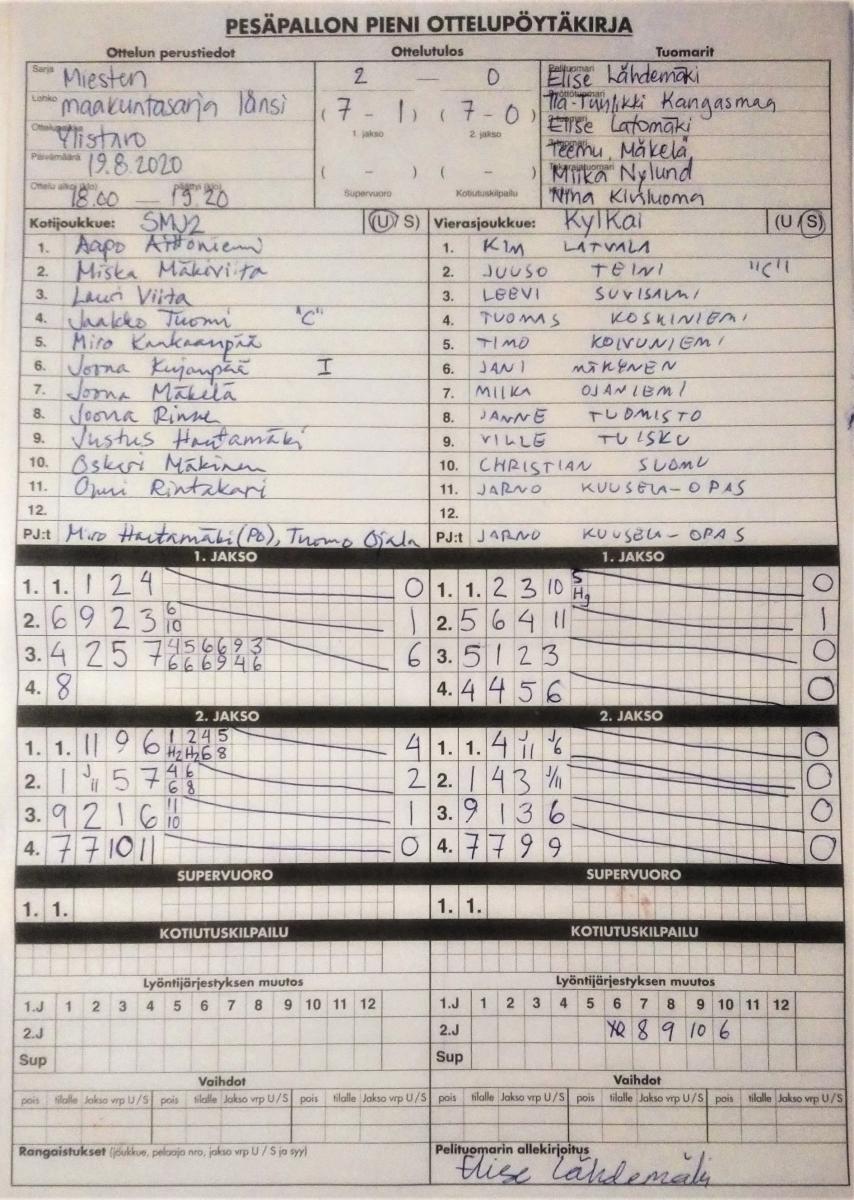 PESÄPALLON PIENI OTTELUPÖYTÄKIRJA
Ottelun perustiedot
Sarja Miesten
Lohko maakuntasarja länsi
Ylistaro
Päivämäärä 19.8.2020
Ottelu alkoi (klo) päättyi (klo)
18.00 — 19.20
Ottelutulos
2 — 0
(7 - 1) (7 - 0)
1. jakso 2. jakso
( - ) ( - )
Supervuoro Kotiutuskilpailu
Tuomarit
Elise Lähdemäki
Kangasmaa
Elise Latomäki
Teemu Mäkelä
Miika Nylund
Nina Kivluoma
Kotijoukkue: SMJ2 (U/S)
1. Aapo
2. Miska Mäkiviita
3. Lauri Viita
4. Jaakko Tuomi "C"
5. Miro Kankaanpää
6. Joona Kujanpää I
7. Joona Mäkelä
8. Joona Rinne
9. Justus Hautamäki
10. Oskari Mäkinen
11. Rintakari
12.
PJ:t Miro Hautamäki (PO), Tuomo Ojala
Vierasjoukkue: KylKai (U/S)
1. KIM LATVALA
2. JUUSO TEINI "C"
3. LEEVI SUVISALMI
4. TUOMAS KOSKINIEMI
5. TIMO KOIVUNIEMI
6. JANI MÄKYNEN
7. MIIKA OJANIEMI
8. JANNE TUOMISTO
9. VILLE TUISKU
10. CHRISTIAN SUOMU
11. JARNO KUUSELA-OPAS
12.
PJ:t JARNO KUUSELA-OPAS
1. JAKSO
1. 1. 1 2 4 0
2. 6 9 2 3 6 10 1
3. 4 2 5 7 4 5 6 6 9 3 6 6 6 9 4 6 6
4. 8
1. JAKSO
1. 1. 2 3 10 5 Hg 0
2. 5 6 4 11 1
3. 5 1 2 3 0
4. 4 4 5 6 0
2. JAKSO
1. 1. 11 9 6 1 2 4 5 H2 H2 6 8 4
2. 1 J 11 5 7 4 6 6 8 2
3. 9 2 1 6 11 10 1
4. 7 7 10 11 0
2. JAKSO
1. 1. 4 J/11 J/6 0
2. 1 4 3 J/11 0
3. 9 1 3 6 0
4. 7 7 9 9 0
SUPERVUORO
1. 1.
SUPERVUORO
1. 1.
KOTIUTUSKILPAILU
KOTIUTUSKILPAILU
Lyöntijärjestyksen muutos
1.J 1 2 3 4 5 6 7 8 9 10 11 12
2.J
Sup
Lyöntijärjestyksen muutos
1.J 1 2 3 4 5 6 7 8 9 10 11 12
2.J 8 9 10 6
Sup
Vaihdot
pois tilalle Jakso vrp U/S pois tilalle Jakso vrp U/S pois tilalle Jakso vrp U/S
Vaihdot
pois tilalle Jakso vrp U/S pois tilalle Jakso vrp U/S pois tilalle Jakso vrp U/S
Rangaistukset (joukkue, pelaaja nro, jakso vrp U / S ja syy)
Pelituomarin allekirjoitus
Elise Lähdemäki